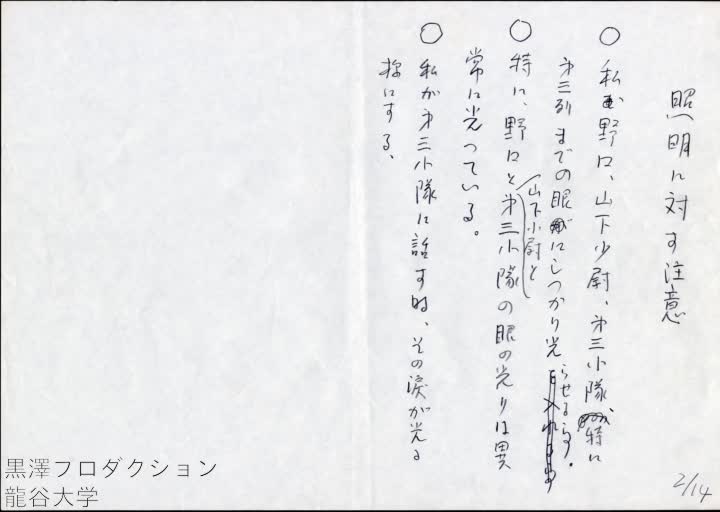 照明に対す注意
○ 私、野口、山下少尉、第三小隊、特に
第三列までの眼にしつかり光らせる
山下小尉と
○ 特に、野口と第三小隊の眼の光りは異
常に光つている。
○ 私が第三小隊に話す時、その涙が光る
様にする、
2/14
黒澤プロダクション
龍谷大学